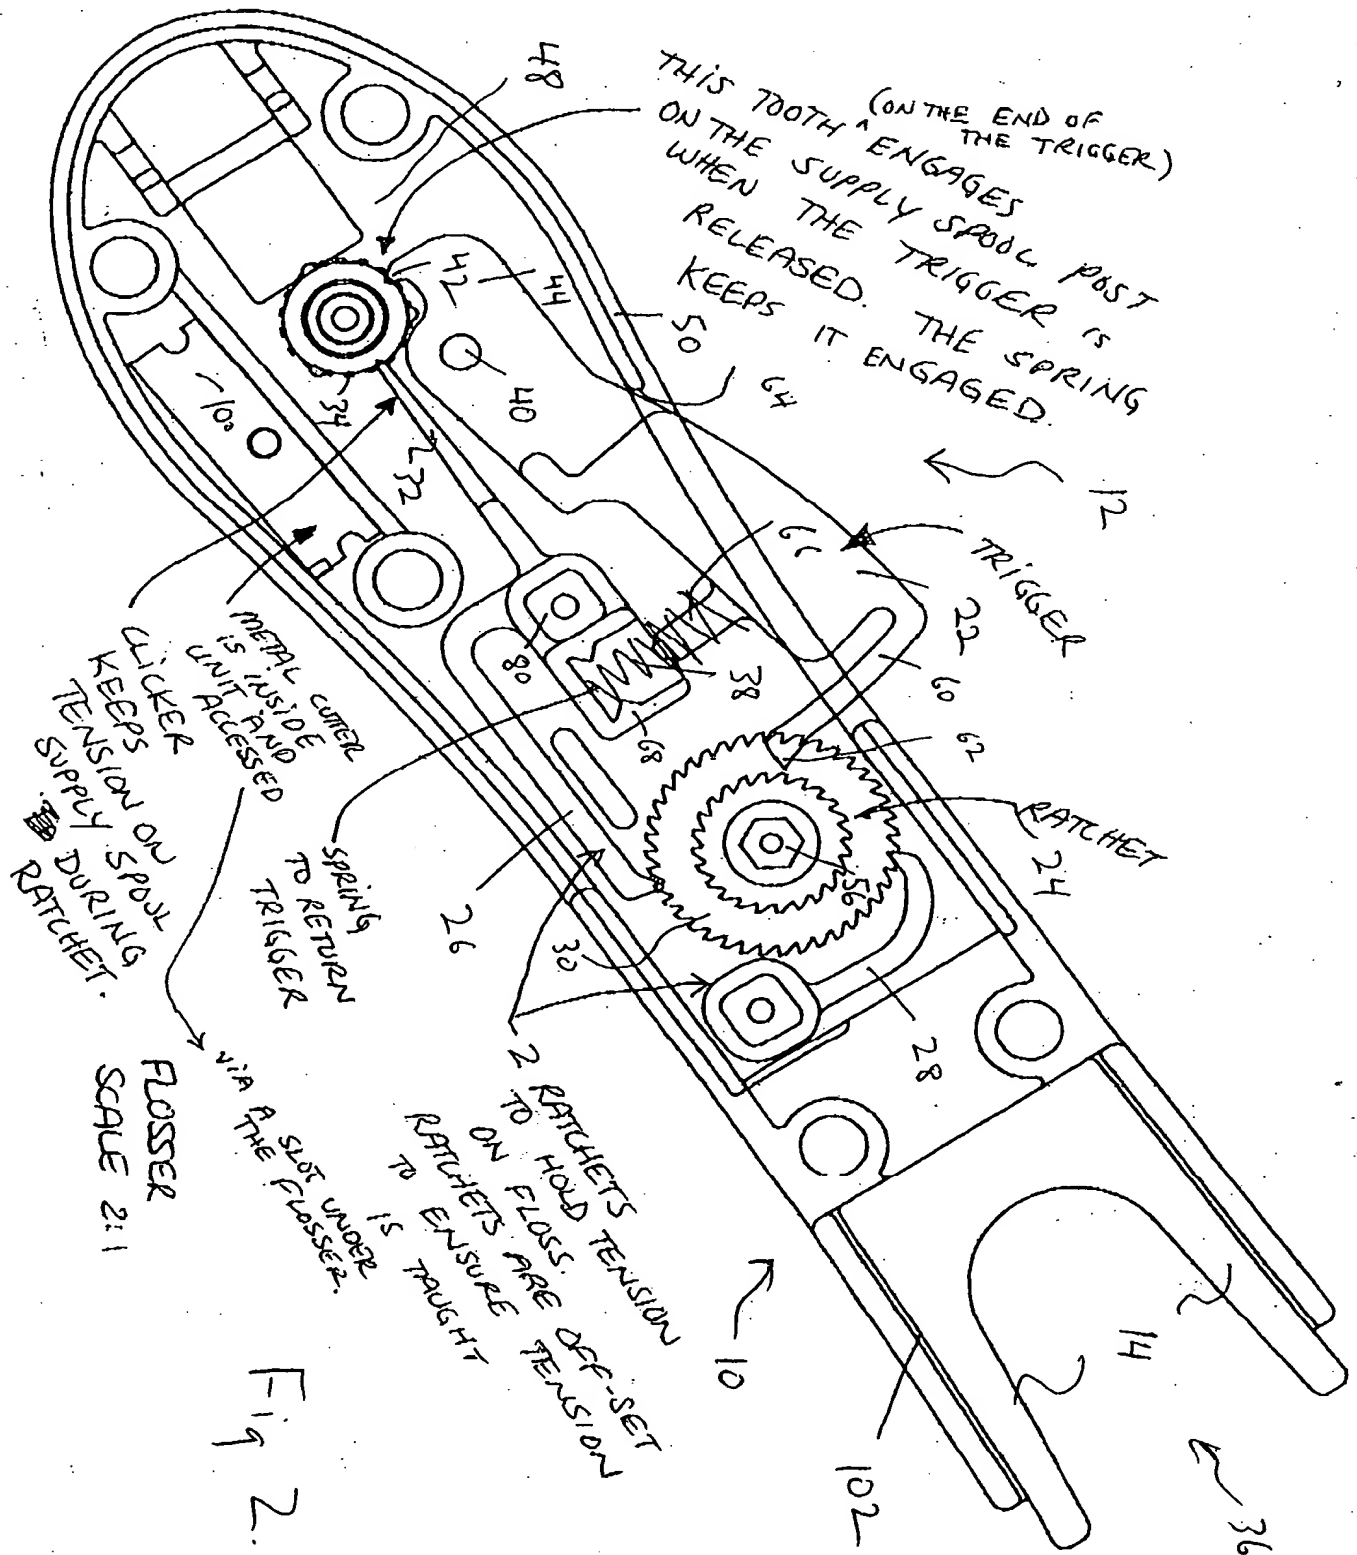 48
THIS TOOTH ^ ENGAGES
(ON THE END OF
THE TRIGGER)
ON THE SUPPLY SPOOL POST
WHEN THE TRIGGER IS
RELEASED. THE SPRING
KEEPS IT ENGAGED.
42
44
50
64
40
34
100
232
12
TRIGGER
22
66
38
60
62
80
68
RATCHET
24
56
30
26
28
METAL CUTTER
IS INSIDE
UNIT AND
ACCESSED
VIA A SLOT UNDER
THE FLOSSER.
CLICKER
KEEPS
TENSION ON
SUPPLY SPOOL
DURING
RATCHET.
SPRING
TO RETURN
TRIGGER
2 RATCHETS
TO HOLD TENSION
ON FLOSS.
RATCHETS ARE OFF-SET
TO ENSURE TENSION
IS TAUGHT
FLOSSER
SCALE 2:1
10
14
102
36
Fig 2.